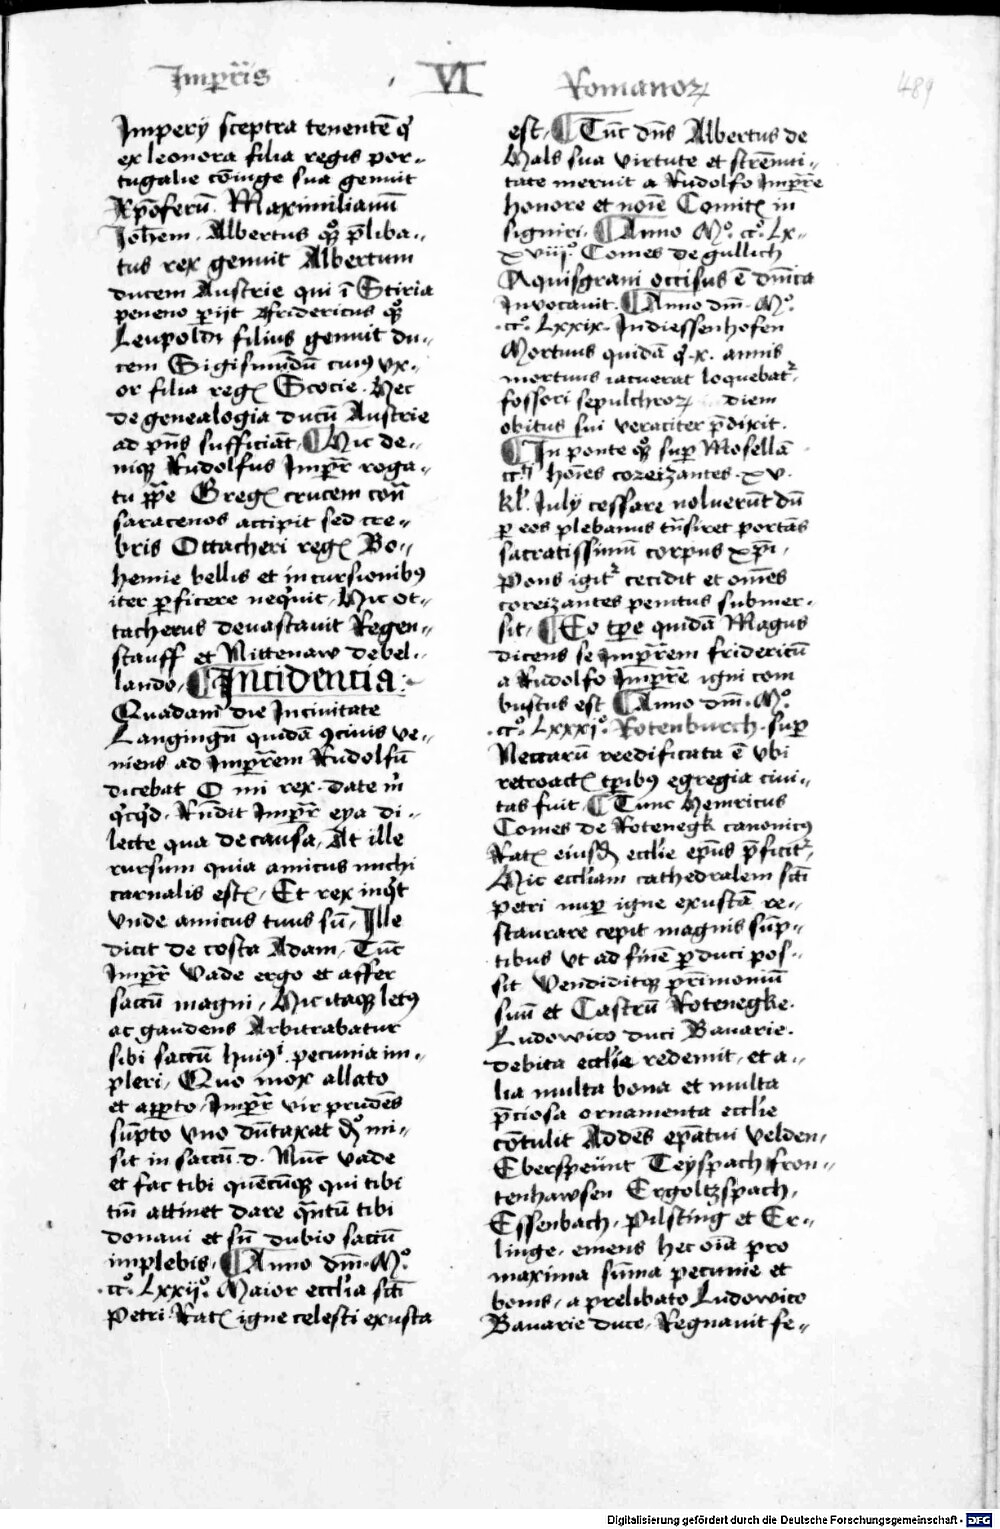 Imp̄ris VI Romanoꝝ
489
Impery sceptra tenentē q̇
ex leonora filia regis por-
tugalie cōiuge sua genuit
Xp̄oferū. Maximilianū
Joh̄em. Albertus qꝫ p̄liba-
tus rex genuit Albertum
ducem Austrie qui ī Stiria
veneno ꝑijt Fridericus qꝫ
Leupoldi filius genuit du-
cem Sigismūdū cuiꝰ vx-
or filia regꝭ Scocie. Hec
de genealogia ducū Austrie
ad p̄ns sufficiāt. Hic de-
niqꝫ Rudolfus Imp̄r roga-
tu pp̄e Gregꝭ crucem con̄
saracenos accipit sed cre-
bris Ottacheri regꝭ Bo-
hemie bellis et in cursionibꝰ
iter ꝑficere neq̇uit. Hic ot-
tacherus devastavit Regen-
stauff et Nittenaw debel-
lando. Incidencia
Quadam die Incivitate
Langingn̄ quidā ꝯcivis ve-
niens ad Imp̄rem Rudolfū
dicebat O mi rex. date m̄
q̇cq̇d. Rn̄dit Imp̄r eya di-
lecte qua de causa. At ille
rursum quia amicus michi
carnalis estꝭ. Et rex inq̇t
vnde amicus tuus sū. Ille
dicit de costa Adam. Tūc
Imp̄r Vade ergo et affer
saccū magnū. Hic itaqꝫ letꝰ
ac gaudens Arbitrabatur
sibi saccū huiꝰ pecunia im-
pleri. Quo mox allato
et aꝑto. Imp̄r vir prudēs
sūpto vno dūtaxat đ mi-
sit in saccū. d. Nūc vade
et fac tibi quēcūqꝫ qui tibi
tm̄ attinet dare qn̄tū tibi
donavi et sn̄ dubio saccū
implebis. Anno dm̄. M°.
.cc°. Lxxij°. Maior eccl̄ia sc̄ti
Petri Ratꝭ igne celesti exusta
est. Tūc dn̄s Albertus de
Hals sua virtute et strēnui-
tate meruit a Rudolfo Imp̄re
honore et noīe Comitꝭ in
signiri. Anno M°. cc°. Lx-
xviij°. Comes de gullich
Aquisgrani occisus ē dn̄ica
Invocavit. Anno dm̄. M°.
.cc°. Lxxix. In diessenhofen
Mortuus quidā q̇ .x. annis
mortuus iacuerat loquebatᷣ
fossori sepulchroꝝ diem
obitus sui veraciter p̄dixit.
In ponte qꝫ suꝑ Mosellā
hoīes coreizantes. xv.
kl̄. July cessare noluerūt dū
ꝑ eos plebanus tn̄siret portās
sacratissimū corpus xp̄i.
Pons igitᷣ cecidit et om̄es
coreizantes penitus submer-
sit. Eo tp̄e quidā Magus
dicens se Imp̄rem fridericū
a Rudolfo Imp̄re igni com
bustus est Anno dm̄. M°.
.cc°. Lxxxj°. Rotenburch. suꝑ
Neccarū reedificata ē vbi
retroactꝭ tp̄ibꝰ egregia civi-
tas fuit. Tunc Heinricus
Comes de Rotenegk canonicꝰ
Ratꝭ eiusđ eccl̄ie ep̄us p̄ficitᷣ.
Hic eccl̄iam cathedralem sc̄ti
petri nuꝑ igne exustā re-
staurare cepit magnis sūp-
tibus vt ad finē ꝑduci pos-
sit Vendiditqꝫ p̄rimoniū
suū et Castrū Rotenegke.
Ludowico duci Bavarie.
debita eccl̄ie redemit. et a-
lia multa bona et multa
p̄ciosa ornamenta eccl̄ie
cōtulit Addēs ep̄atui velden.
Eberspeünt Teyspach fron-
tenhawsen Ergoltzspach.
Essenbach. Pilsting et Er-
linge. emens hec oīa pro
maxima sūma pecunie et
bonis. a prelibato Ludowico
Bavarie duce. Regnavit fe-
Digitalisierung gefördert durch die Deutsche Forschungsgemeinschaft - DFG